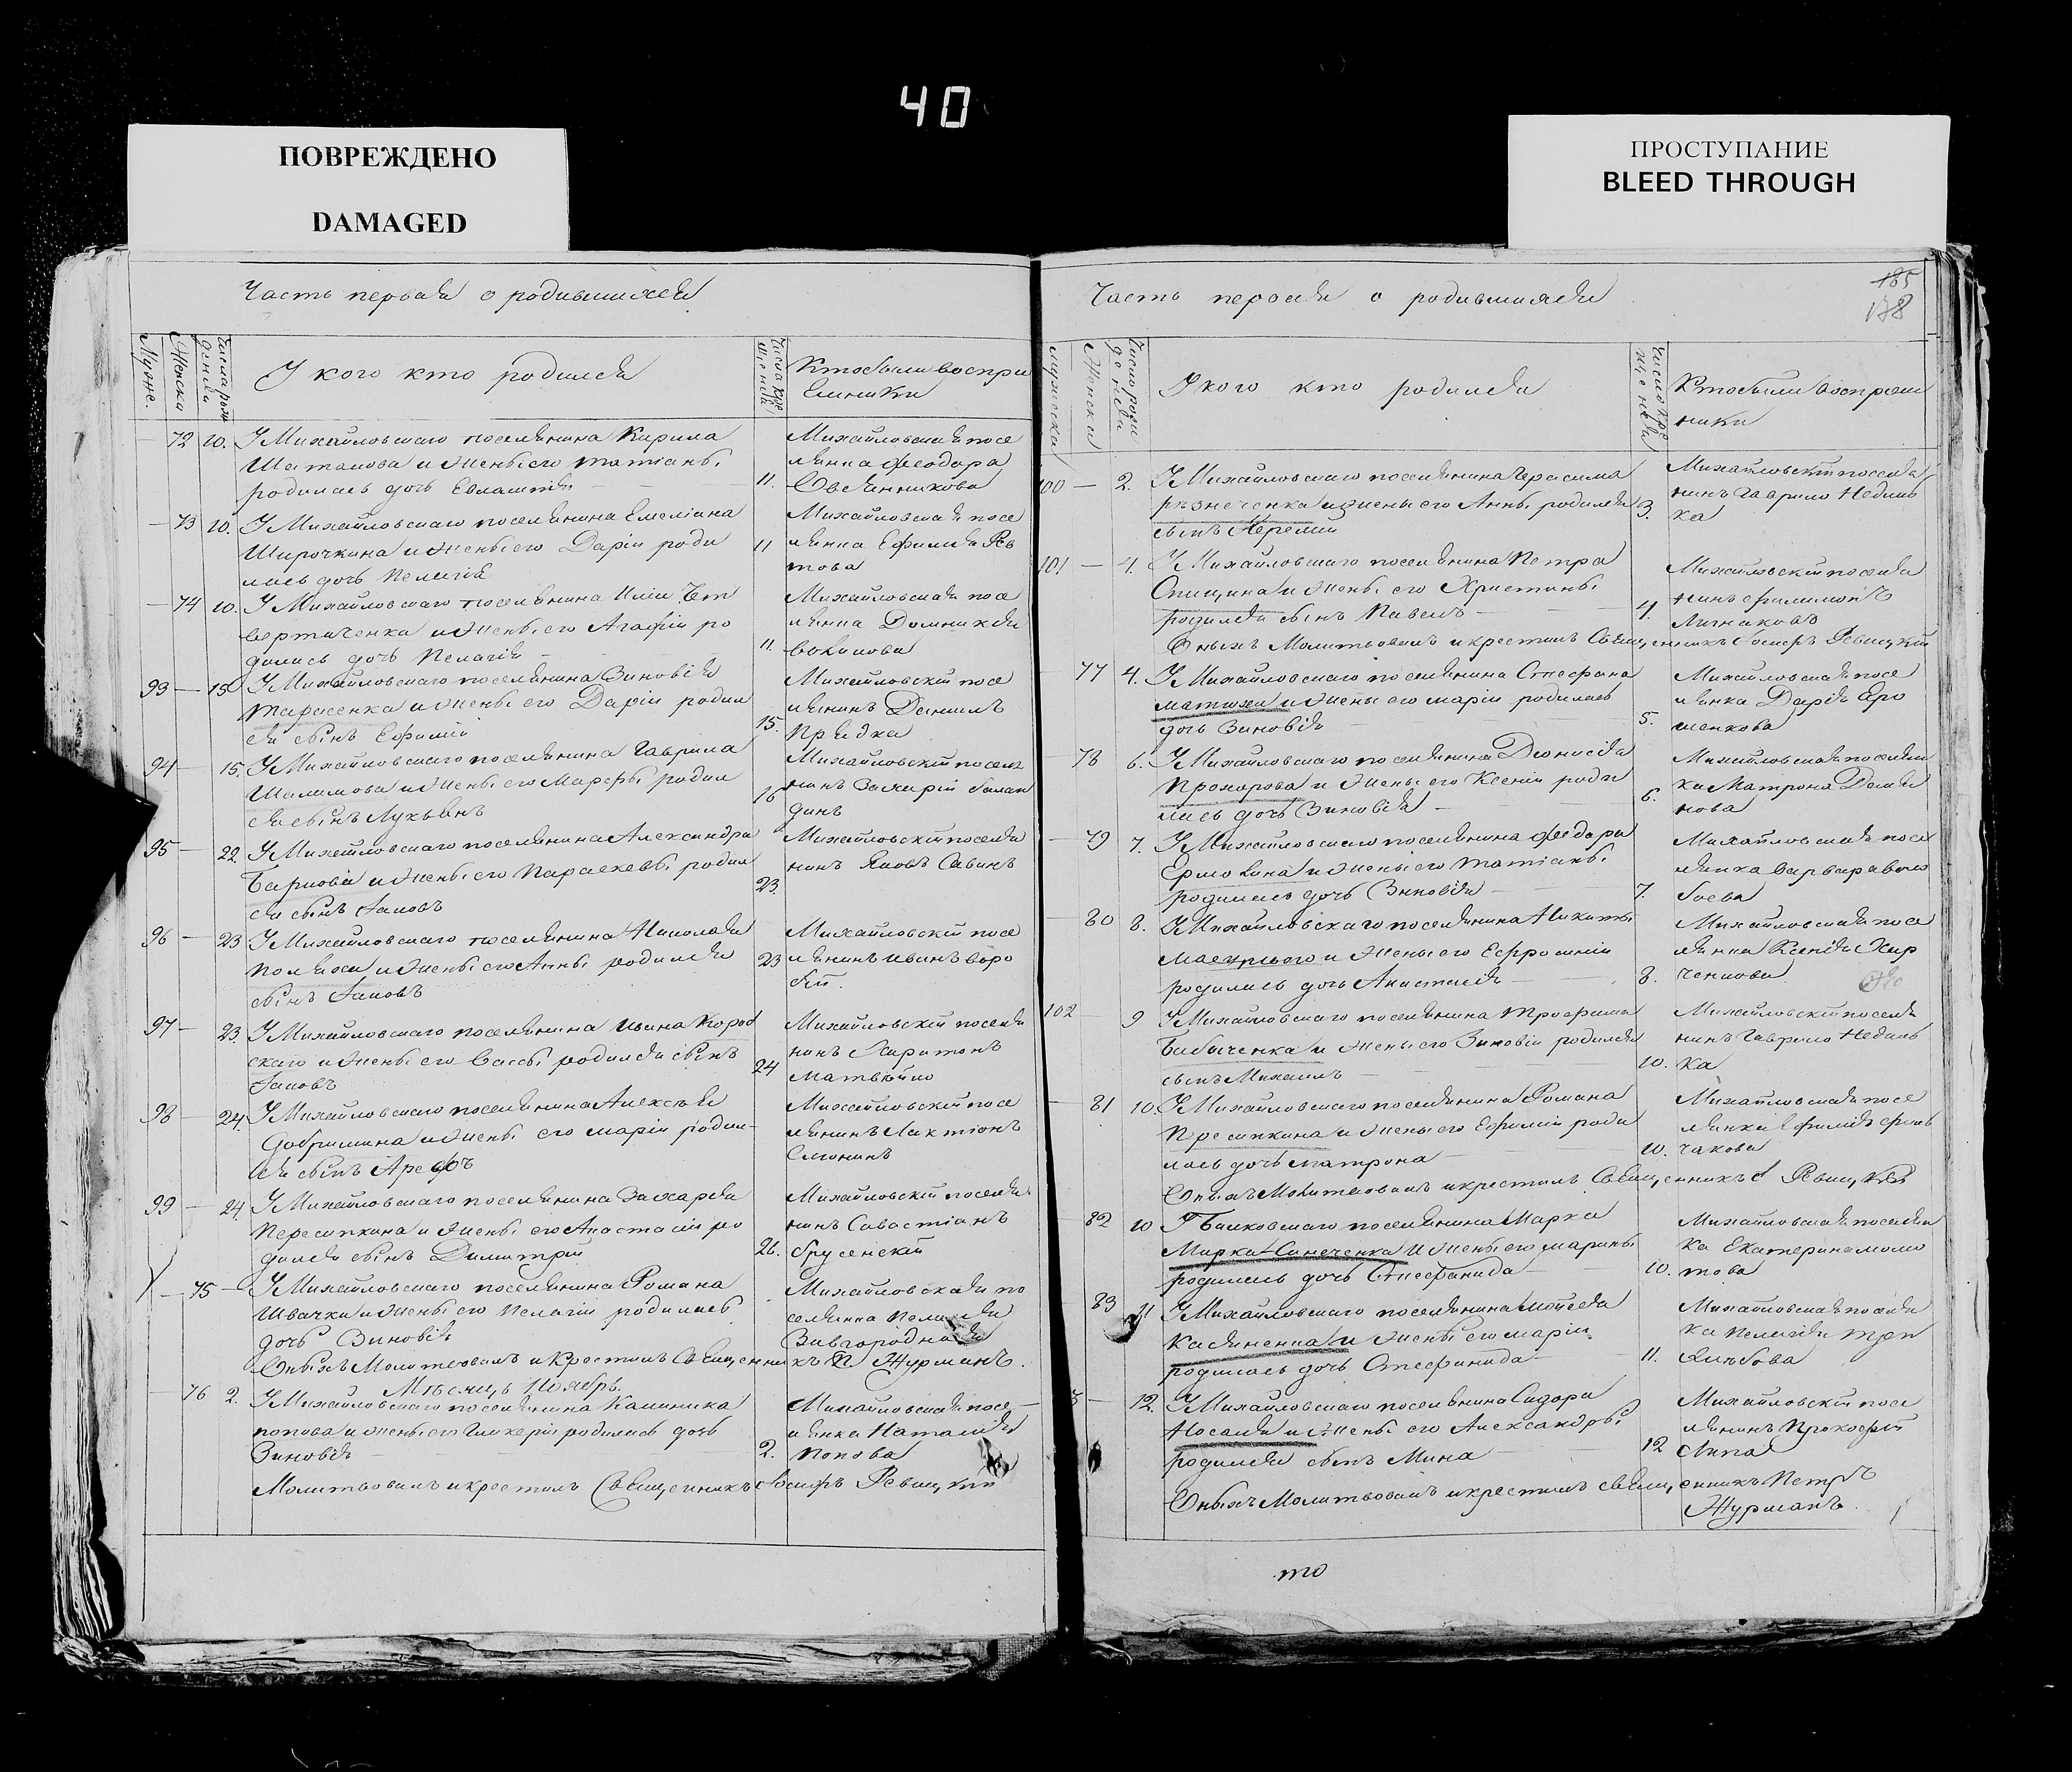 40
ПОВРЕЖДЕНО
DAMAGED
ПРОСТУПАНИЕ
BLEED THROUGH
Часть первая о родившихся
Мужс.
Женски
Числа рож
денія
У кого кто родился
Числа кре
щенія
Кто были воспри
емники
72 10. У Михайловскаго поселянина Кирила
Шаталова и жены его Татіаны
родилась дочь Евлампія
11.
Михайловская посе
лянка Феодора
Овсянникова
73 10. У Михайловскаго поселянина Емеліана
Широчкина и жены его Даріи роди
лась дочь Пелагія
11
Михайловская посе
лянка Ефимія
това
74 10. У Михайловскаго поселянина Иліи Чет
вертаченка и жены его Агафіи ро
дилась дочь Пелагія
11.
Михайловская посе
лянка Домникія
93 — 15 У Михайловскаго поселянина Зиновія
Тарасенка и жены его Даріи родил
ся сынъ Ефимій
15.
Михайловскій посе
лянинъ Даніилъ
Прядка
94 — 15. У Михайловскаго поселянина Гаврила
Шалимова и жены его Марфы родил
ся сынъ Лукьянъ
16
Михайловскій поселя
нинъ Захарій Балан
динъ
95 — 22 У Михайловскаго поселянина Александра
и жены его Параскевы родил
ся сынъ Іаковъ
23
Михайловскій поселя
нинъ Яковъ Савинъ
96 — 23 У Михайловскаго поселянина Николая
Поляха и жены его Анны родился
сынъ Іаковъ
23
Михайловскій посе
лянинъ Иванъ Воро
бій.
97 — 23. У Михайловскаго поселянина Ивана Город
скаго и жены его Вассы родился сынъ
Іаковъ
24
Михайловскій поселя
нинъ Харитонъ
Матвейко
98 — 24. У Михайловскаго поселянина Алексея
Добришина и жены его Маріи родил
ся сынъ Арефъ
Михайловскій посе
лянинъ Лактіонъ
99 — 24. У Михайловскаго поселянина Захарія
Пересипкина и жены его Анастасіи ро
дился сынъ Димитрій
26.
Михайловскій поселя
нинъ Савастіанъ
Брусенскій
75 — У Михайловскаго поселянина Романа
Швачки и жены его Пелагіи родилась
дочь Зиновія
Михайловская по
селянка Пелагія
Завгородная
Оныхъ Молитвовалъ и Крестилъ Священникъ П Журманъ.
Мѣсяцъ Ноябрь.
76 2. У Михайловскаго поселянина Калиника
Попова и жены его Гликеріи родилась дочь
Зиновія
2.
Михайловская посе
лянка Наталія
Попова
Молитвовалъ и крестилъ Священникъ Іосифъ Ревицкій
Часть первая о родившихся
185
188
мужеска
Женски
Число рож
денія
У кого кто родился
Число кре
щенія
Кто были воспрем
ники
100 — 2. У Михайловскаго поселянина Герасима
Резнеченка и жены его Анны родился
сынъ Іеремій
3.
Михайловскій поселя
нинъ Гаврило Недиль
ка
101 — 4. У Михайловскаго поселянина Петра
Опицина и жены его Христины
родился сынъ Павелъ
4.
Михайловскій поселя
нинъ Филимонъ
Лучниковъ
Оныхъ Молитвовалъ и крестилъ Священникъ Іосифъ Ревицкій
77 4. У Михайловскаго поселянина Стефана
Матюхи и жены его Маріи родилась
дочь Зиновія
5.
Михайловская посе
лянка Дарія Еро
шенкова
78 6. У Михайловскаго поселянина Діонисія
Прохорова и жены его Ксеніи роди
лась дочь Зиновія
6.
Михайловская поселян
ка Матрона Деми
нова
79 7. У Михайловскаго поселянина Федора
Ермохина и жены его Татіаны
родилась дочь Зиновія
7.
Михайловская посе
лянка Варвара Воло
боева
80 8. У Михайловскаго поселянина Никиты
и жены его Ефросиніи
родилась дочь Анастасія
8.
Михайловская посе
лянка Ксенія Хар
ченкова
102 9 У Михайловскаго поселянина Трофима
Бабыченка и жены его Зиновіи родился
сынъ Михаилъ
10.
Михайловскій поселя
нинъ Гаврило Недиль
ка
81 10. У Михайловскаго поселянина Романа
Пресипкина и жены его Ефиміи роди
лась дочь Матрона
10.
Михайловская посе
лянка Ефимія
чакова
Оныхъ Молитвовалъ и крестилъ Священникъ І Ревицкій
82 10 Г Балковскаго поселянина Марка
Марка Синеченка и жены его Марины
родилась дочь Стефанида
10.
Михайловская поселян
ка Екатерина Моло
това
83 11 У Михайловскаго поселянина Моисея
Касяненка и жены его Маріи
родилась дочь Стефанида
11.
Михайловская поселян
ка Пелагія
12. У Михайловскаго поселянина Сидора
Носаля и жены его Александры
родился сынъ Мина
12
Михайловскій посе
лянинъ Прокофій
Липа
Оныхъ Молитвовалъ и крестилъ священникъ Петръ
Журманъ.
то